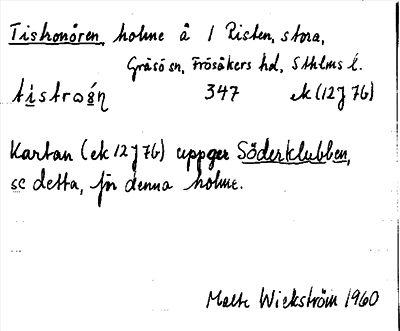 Tiskonören, holme å / Risten, stora,
Gräsö sn, Frösåkers hd, Sthlms l.
347 ek (12J 7G)
Kartan (ek 12J 7G) uppger Söderklubben,
se detta, för denna holme.
Malte Wickström 1960